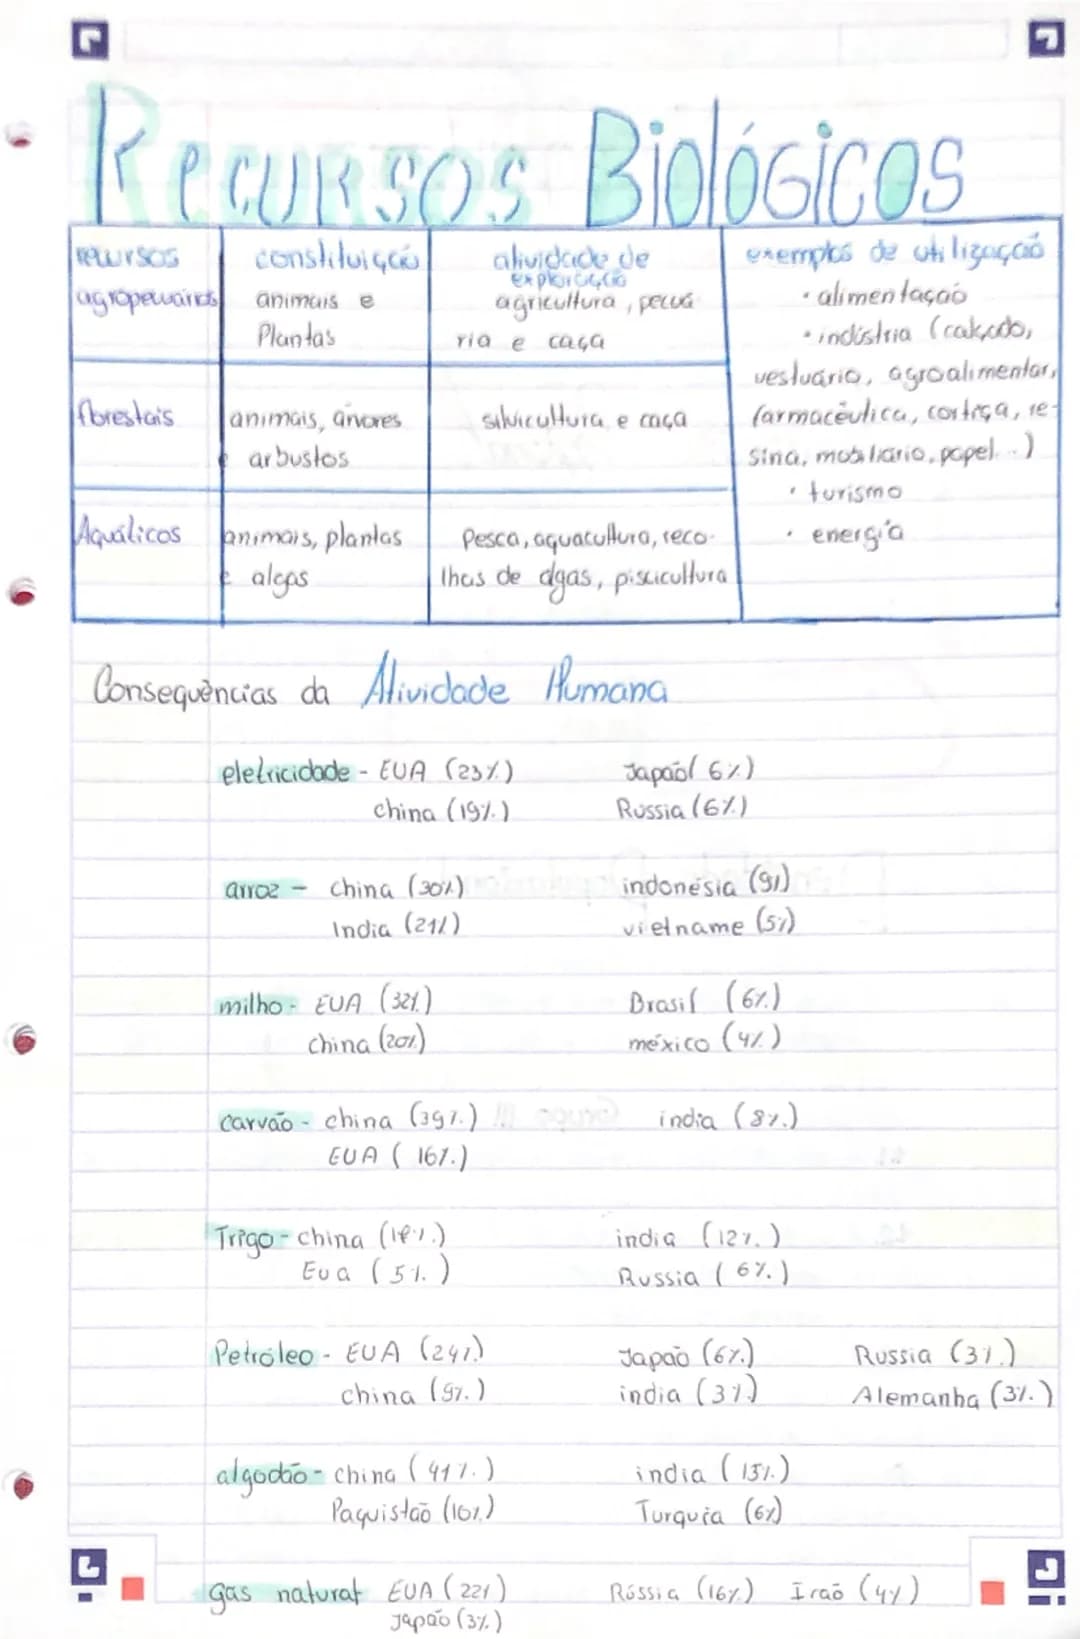 Recursos Biológicos
recursos constituição atividade de exploração exemplos de utilização
agropecuários animais e Plantas agricultura, pecuária e caça
florestais animais, árvores e arbustos silvicultura e caça
Aquáticos animais, plantas e algas Pesca, aquacultura, recolhas de algas, piscicultura
• alimentação
• indústria (calçado,
vestuário, agroalimentar,
farmacêutica, cortiça, re-
sina, mobiliário, papel...)
• turismo
• energia
Consequências da Atividade Humana
eletricidade - EUA (23%) Japão (6%)
china (19%) Russia (6%)
arroz - china (30%) indonésia (9%)
India (21%) vietname (5%)
milho - EUA (32%) Brasil (6%)
china (20%) méxico (4%)
carvão - china (39%) india (8%)
EUA (16%)
Trigo - china ( india (12%)
Eua (5%) Russia (6%)
Petróleo - EUA (24%) Japão (6%) Russia (3%)
china (9%) india (3%) Alemanha (3%)
algodão - china (41%) india (15%)
Paquistão (10%) Turquia (6%)
gas natural EUA (22%) Rússia (16%) Irão (4%)
Japão (3%)